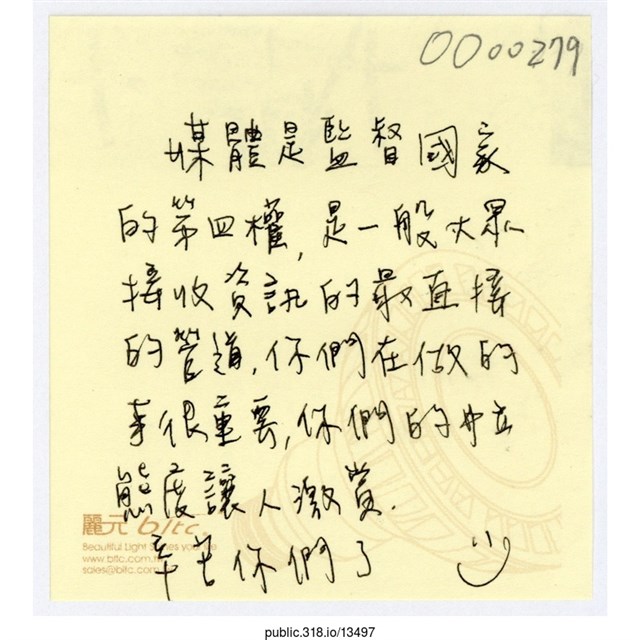 0000279
媒體是監督國家
的第四權,是一般大眾
接收資訊的最直接
的管道,你們在做的
事很重要,你們的
態度讓人激賞.
辛苦你們了
麗元 bltc
Beautiful Light
www.bltc.com
sales@bltc.com
public.318.io/13497